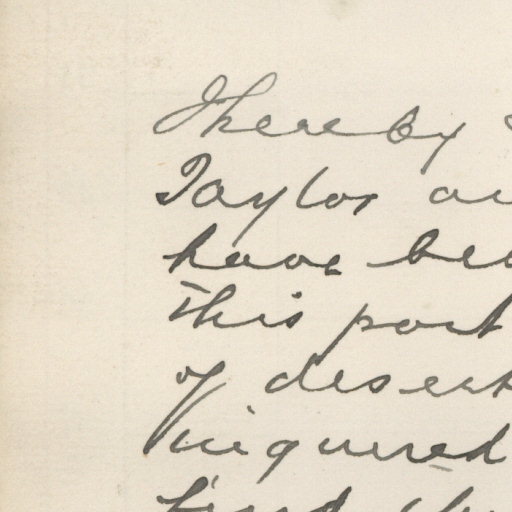 I hereby
Taylor
have
this post
of desert
inquired
find